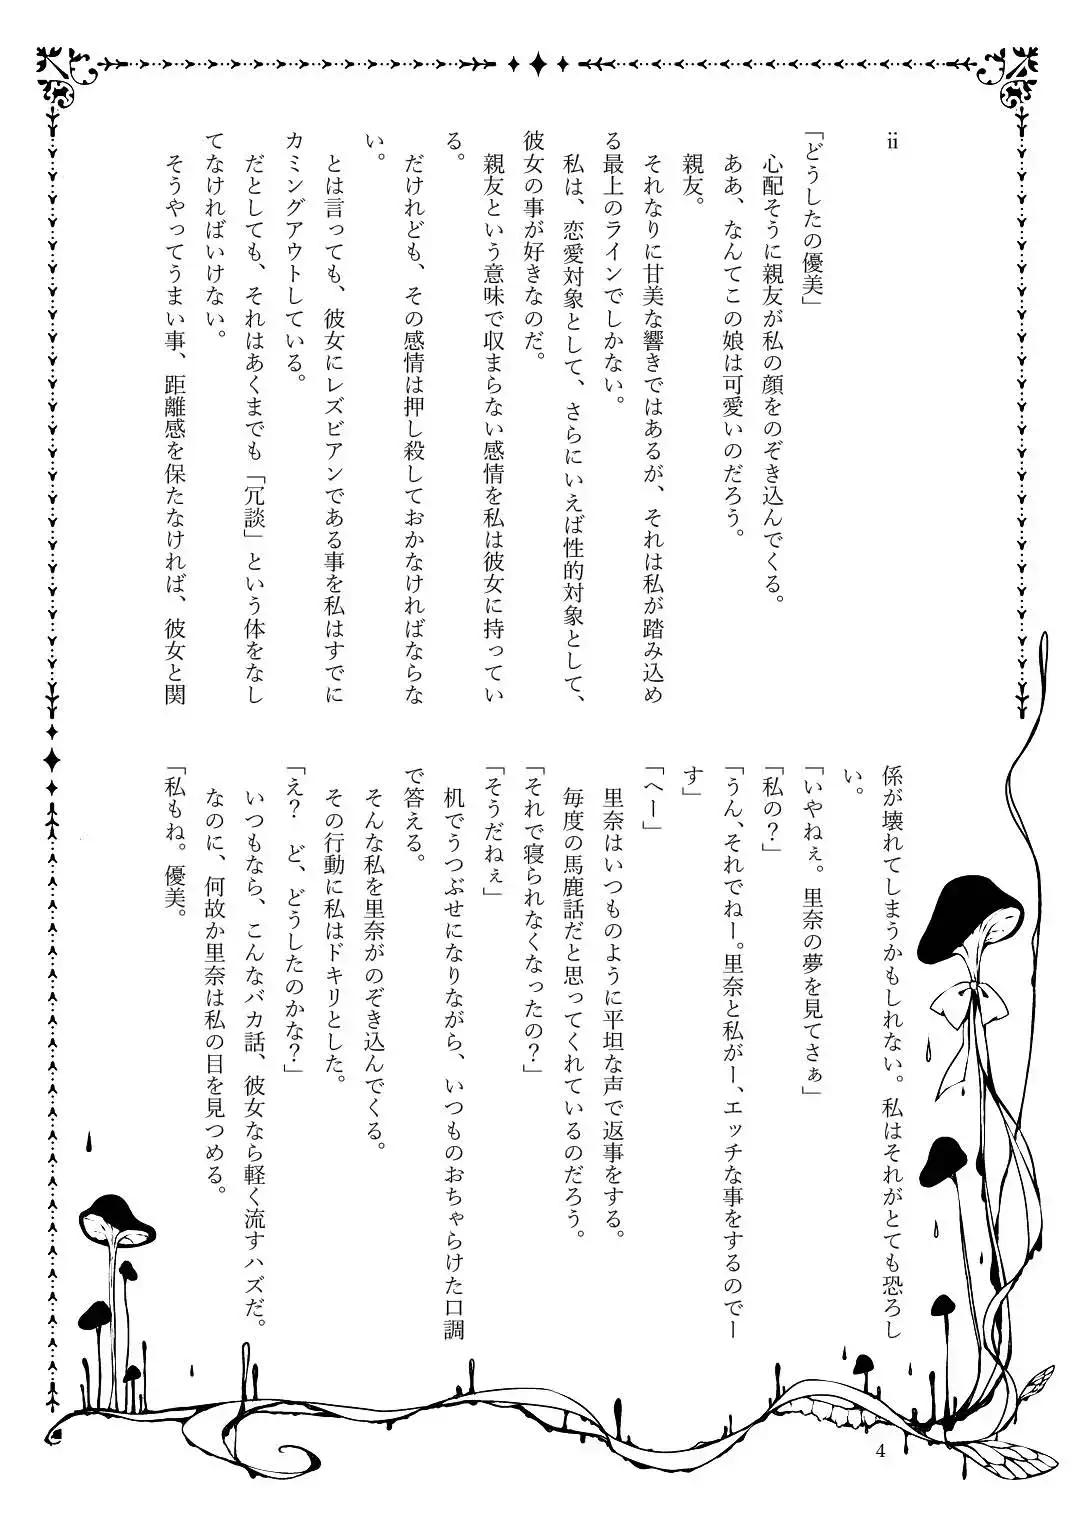 ii
「どうしたの優美」
心配そうに親友が私の顔をのぞき込んでくる。
ああ、なんてこの娘は可愛いのだろう。
親友。
それなりに甘美な響きではあるが、それは私が踏み込め
る最上のラインでしかない。
私は、恋愛対象として、さらにいえば性的対象として、
彼女の事が好きなのだ。
親友という意味で収まらない感情を私は彼女に持ってい
る。
だけれども、その感情は押し殺しておかなければならな
い。
とは言っても、彼女にレズビアンである事を私はすでに
カミングアウトしている。
だとしても、それはあくまでも「冗談」という体をなし
てなければいけない。
そうやってうまい事、距離感を保たなければ、彼女と関
係が壊れてしまうかもしれない。私はそれがとても恐ろし
い。
「いやねぇ。里奈の夢を見てさぁ」
「私の？」
「うん、それでねー。里奈と私がー、エッチな事をするのでー
す」
「へー」
里奈はいつものように平坦な声で返事をする。
毎度の馬鹿話だと思ってくれているのだろう。
「それで寝られなくなったの？」
「そうだねぇ」
机でうつぶせになりながら、いつものおちゃらけた口調
で答える。
そんな私を里奈がのぞき込んでくる。
その行動に私はドキリとした。
「え？　ど、どうしたのかな？」
いつもなら、こんなバカ話、彼女なら軽く流すハズだ。
なのに、何故か里奈は私の目を見つめる。
「私もね。優美。
4